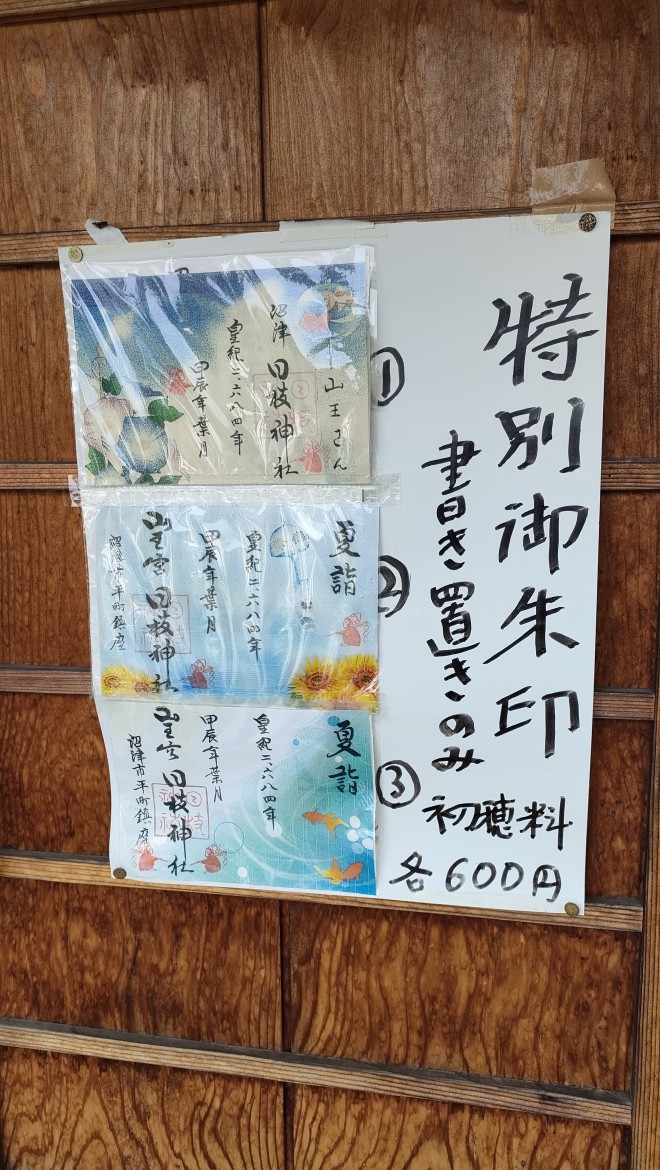 特別御朱印
書き置きのみ
初穂料
各600円
①
山王さん
沼津 日枝神社
皇紀二、六八四年
甲辰年葉月
②
夏詣
皇紀二、六八四年
甲辰年葉月
山王宮 日枝神社
沼津市平町鎮座
③
夏詣
皇紀二、六八四年
甲辰年葉月
山王宮 日枝神社
沼津市平町鎮座